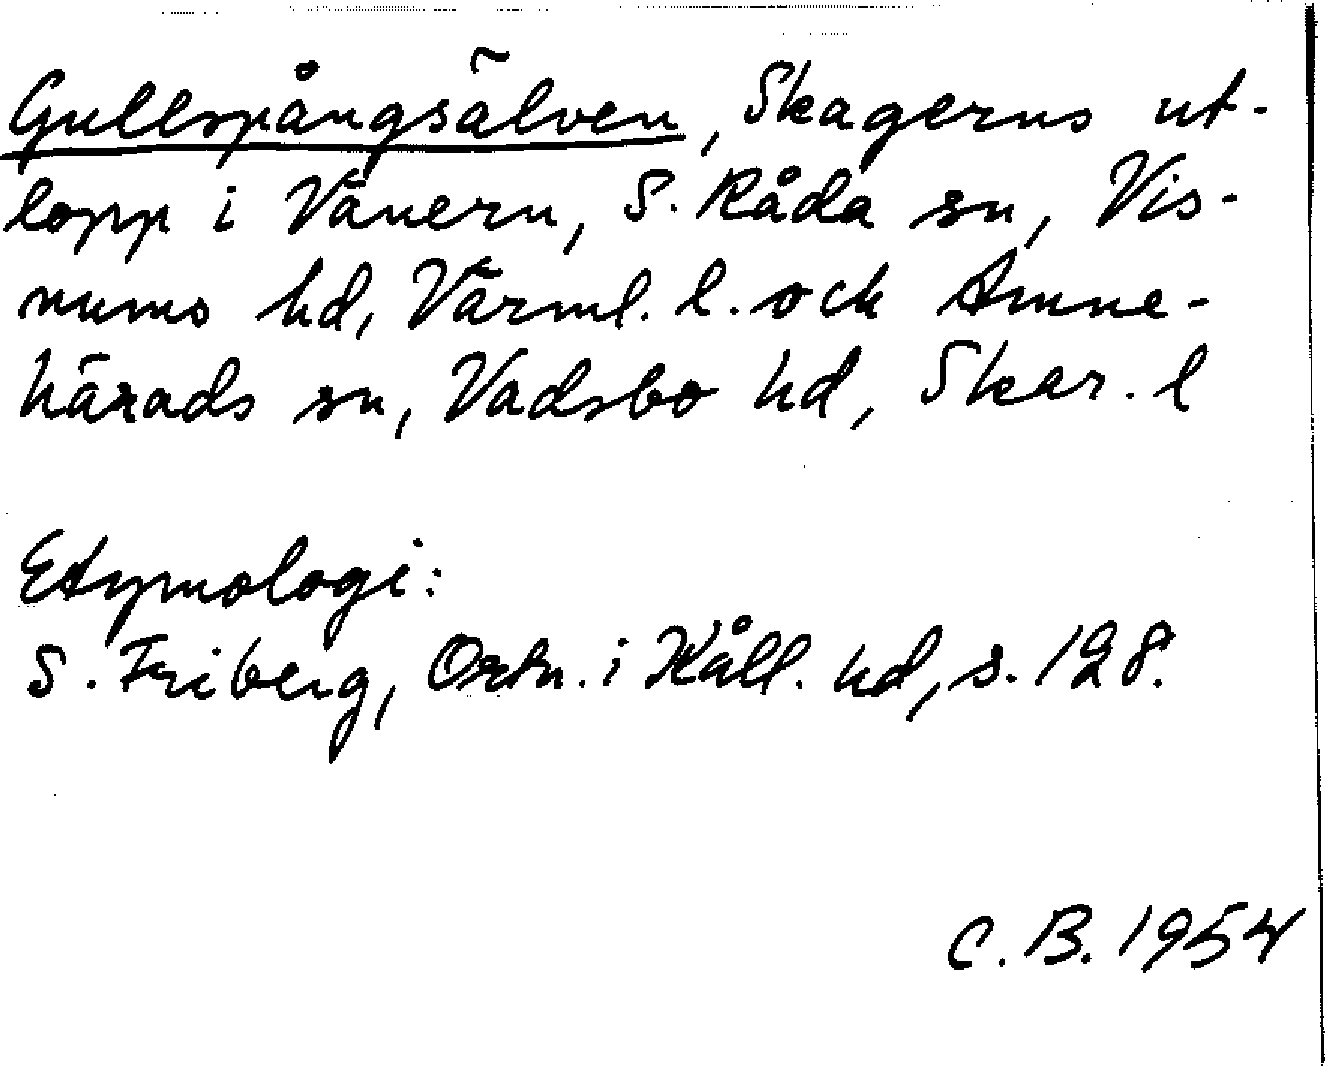 Gullspångsälven, Skagerns ut-
lopp i Vänern, S. Råda sn, Vis-
nums hd, Värml. l. och Amne-
härads sn, Vadsbo hd, Skar. l
Etymologi:
S. Friberg, Ortn. i Kåll. hd, s. 128.
C. B. 1954